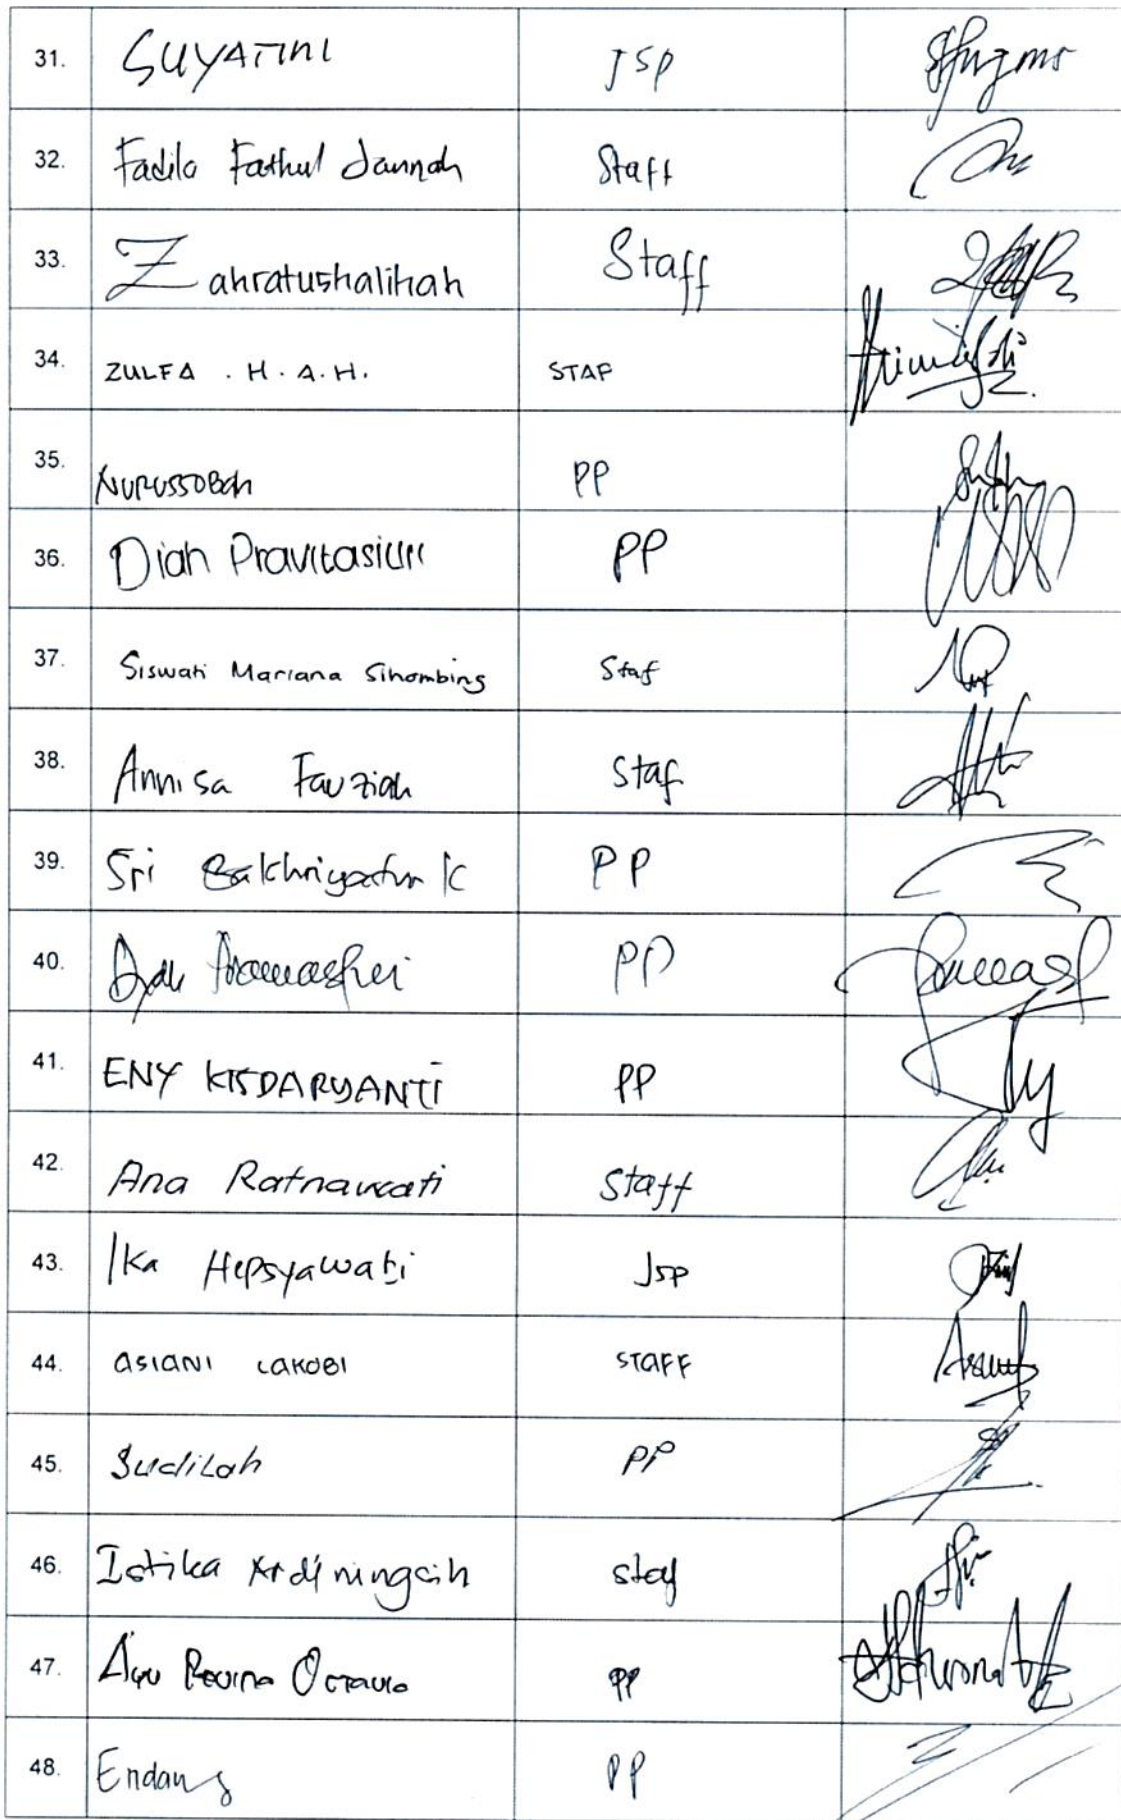 31. SUYATINI JSP
32. Fadila Fathul Jannah Staff
33. Zahratushalihah Staff
34. ZULFA . H . A . H. STAF
35. NURUSSOBAH PP
36. Diah Pravitasari PP
37. Siswati Mariana Sihombing Staf
38. Annisa Fauziah Staf
39. Sri K PP
40. PP
41. ENY KISDARYANTI PP
42. Ana Ratnawati Staff
43. Ika Hepsyawati Jsp
44. ASIANI LAKOBI STAFF
45. Sudilah PP
46. Istika Ardiningsih staf
47. Ayu Octavia PP
48. Endang PP